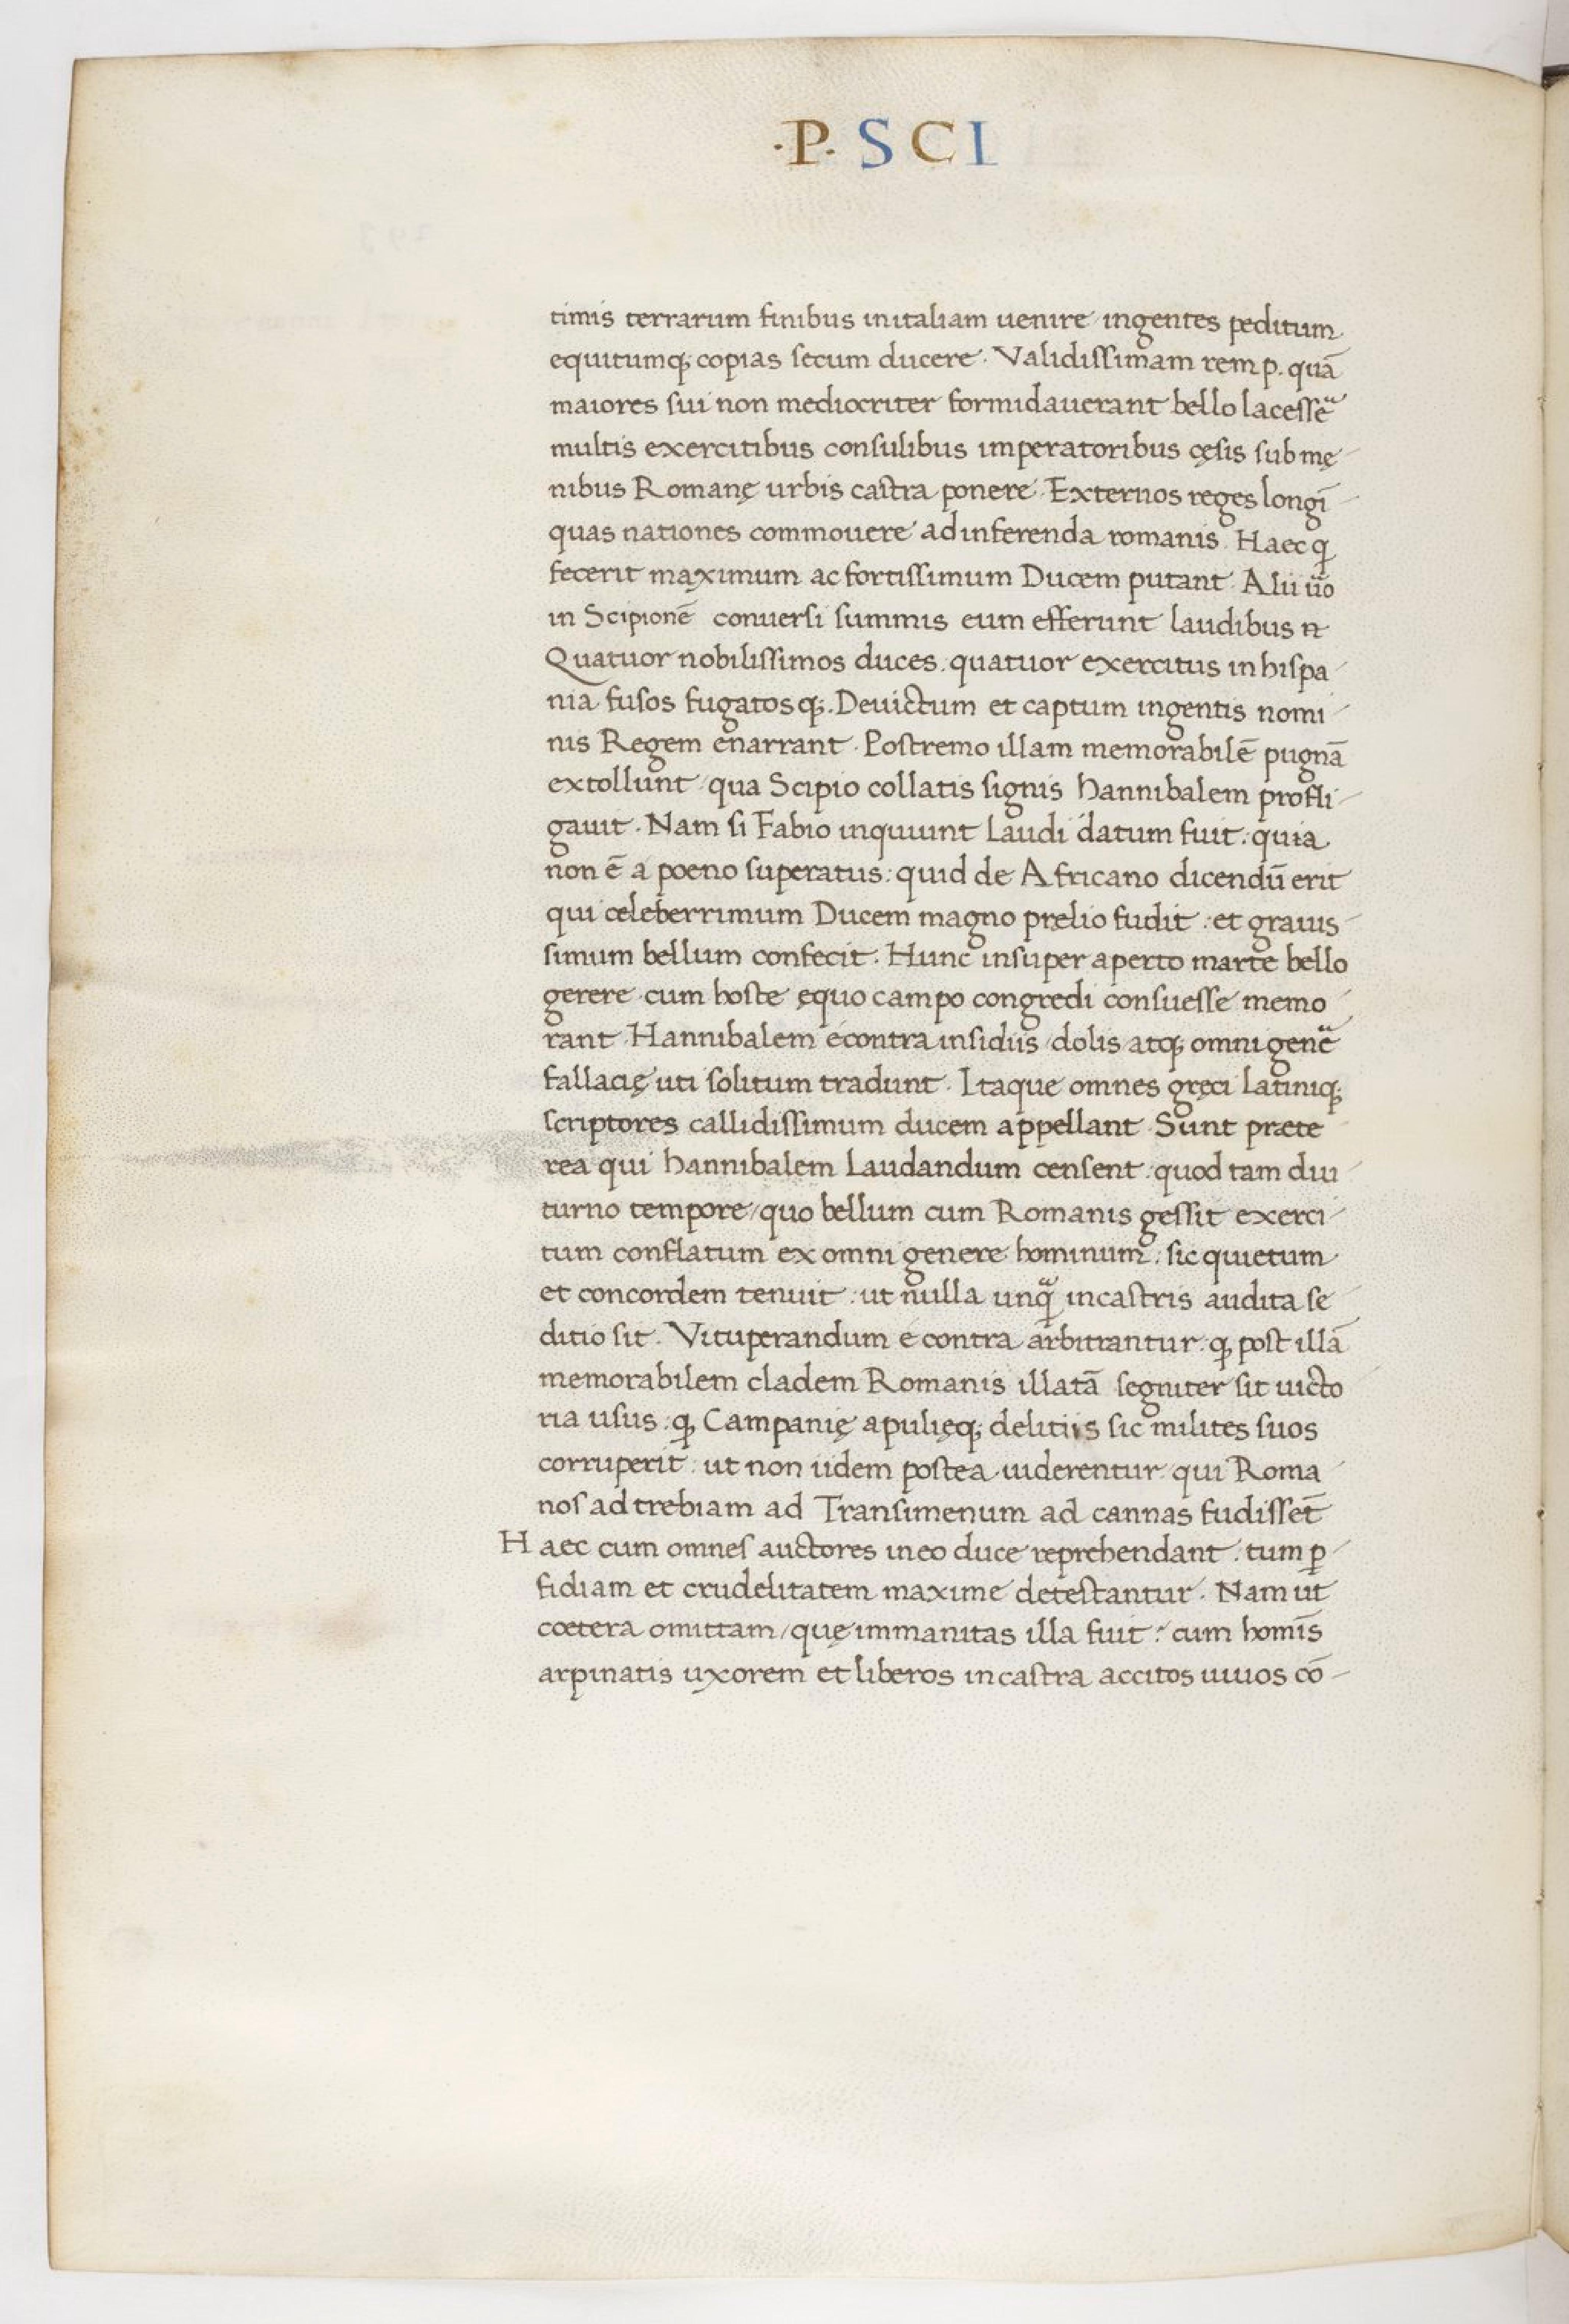 ·P· SCI
timis terrarum finibus initaliam uenire ingentes peditum
equitumq; copias secum ducere. Validissimam rem p. quā
maiores sui non mediocriter formidauerant bello lacessē
multis exercitibus consulibus imperatoribus cęsis sub mę
nibus Romanę urbis castra ponere. Externos reges longī
quas nationes commouere ad inferenda romanis. Haec q
fecerit maximum ac fortissimum Ducem putant. Alii ūo
in Scipionē conuersi summis eum efferunt laudibus
Quatuor nobilissimos duces. quatuor exercitus in hispa
nia fusos fugatosq;. Deuictum et captum ingentis nomi
nis Regem enarrant. Postremo illam memorabilē pugnā
extollunt qua Scipio collatis signis hannibalem profli
gauit. Nam si Fabio inquiunt Laudi datum fuit: quia
non ē a poeno superatus: quid de Africano dicendū erit
qui celeberrimum Ducem magno prelio fudit: et grauis
simum bellum confecit. Hunc insuper aperto marte bello
gerere cum hoste ęquo campo congredi consuesse memo
rant. Hannibalem econtra insidiis dolis atq; omni genē
fallacię uti solitum tradunt. Itaque omnes gręci Latiniq;
scriptores callidissimum ducem appellant. Sunt præte
rea qui hannibalem Laudandum censent: quod tam diu
turno tempore/quo bellum cum Romanis gessit exerci
tum conflatum ex omni genere hominum: sic quietum
et concordem tenuit: ut nulla unq̄ incastris audita se
ditio sit. Vituperandum e contra arbitrantur: q post illā
memorabilem cladem Romanis illatā segniter sit uicto
ria usus: q Campanię apulięq; delitiis sic milites suos
corruperit: ut non iidem postea uiderentur qui Roma
nos ad trebiam ad Transimenum ad cannas fudissēt
Haec cum omnes auctores in eo duce reprehendant: tum p̱
fidiam et crudelitatem maxime detestantur. Nam ut
cœtera omittam/quę immanitas illa fuit: cum homīs
arpinatis uxorem et liberos incastra accitos uiuos cō